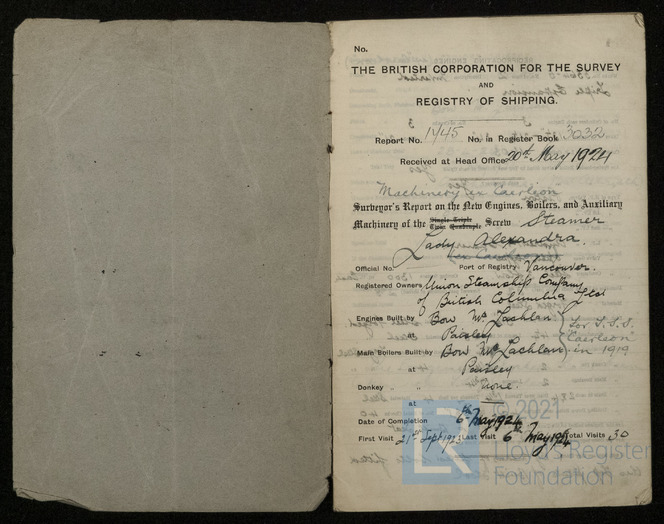 No.
THE BRITISH CORPORATION FOR THE SURVEY
AND
REGISTRY OF SHIPPING.
3
Report No. 1445 No. in Register Book 3032
Received at Head Office 20th May 1924
Machinery ex Caerleon
Surveyor's Report on the New Engines, Boilers, and Auxiliary
Single Triple
Machinery of the Twin Quadruple Screw Steamer
Lady Alexandra.
Official No. Port of Registry Vancouver.
Registered Owners Union Steamship Company
of British Columbia Ltd
Engines Built by Bow McLachlan For T.S.S.
at Paisley "Caerleon"
Main Boilers Built by Bow McLachlan in 1919
at Paisley
Donkey " None.
at
Date of Completion 6th May 1924
First Visit 21st Sept 1923 Last Visit 6th May 1924 Total Visits 30
© 2021
LR
Lloyd's Register
Foundation